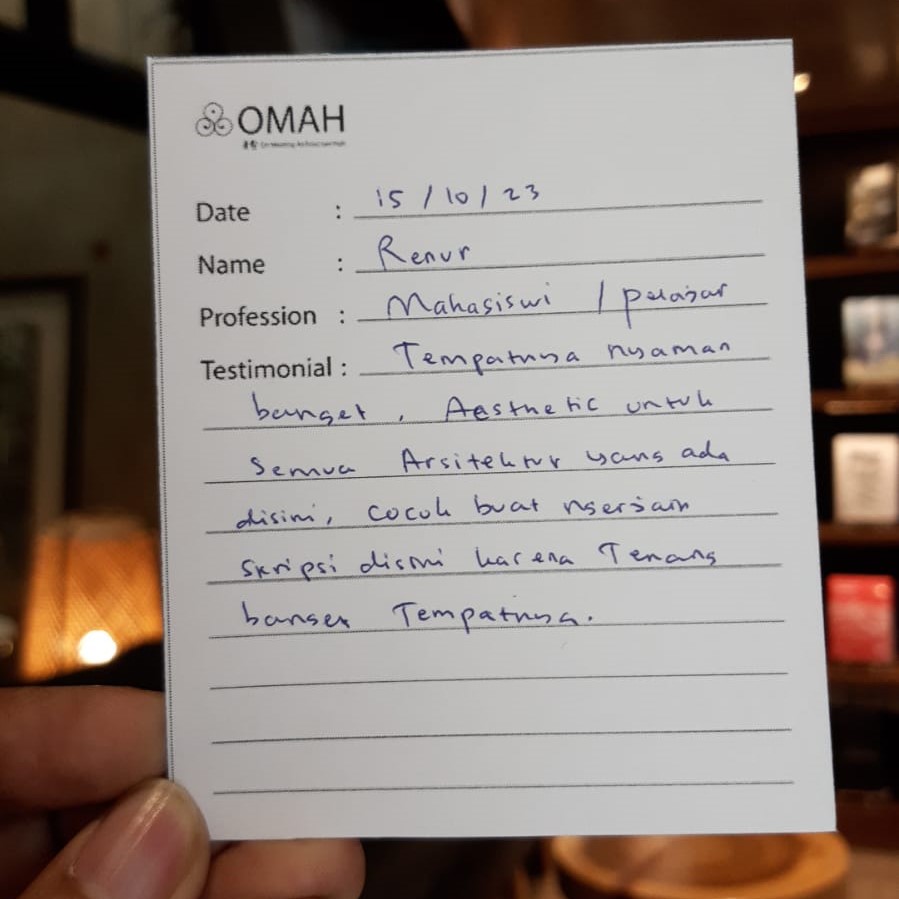 OMAH
Date : 15 / 10 / 23
Name : Renur
Profession : Mahasiswi / pelajar
Testimonial : Tempatnya nyaman
banget, Aesthetic untuk
Semua Arsitektur yang ada
disini, cocok buat ngerjain
Skripsi disini karena Tenang
banget Tempatnya.